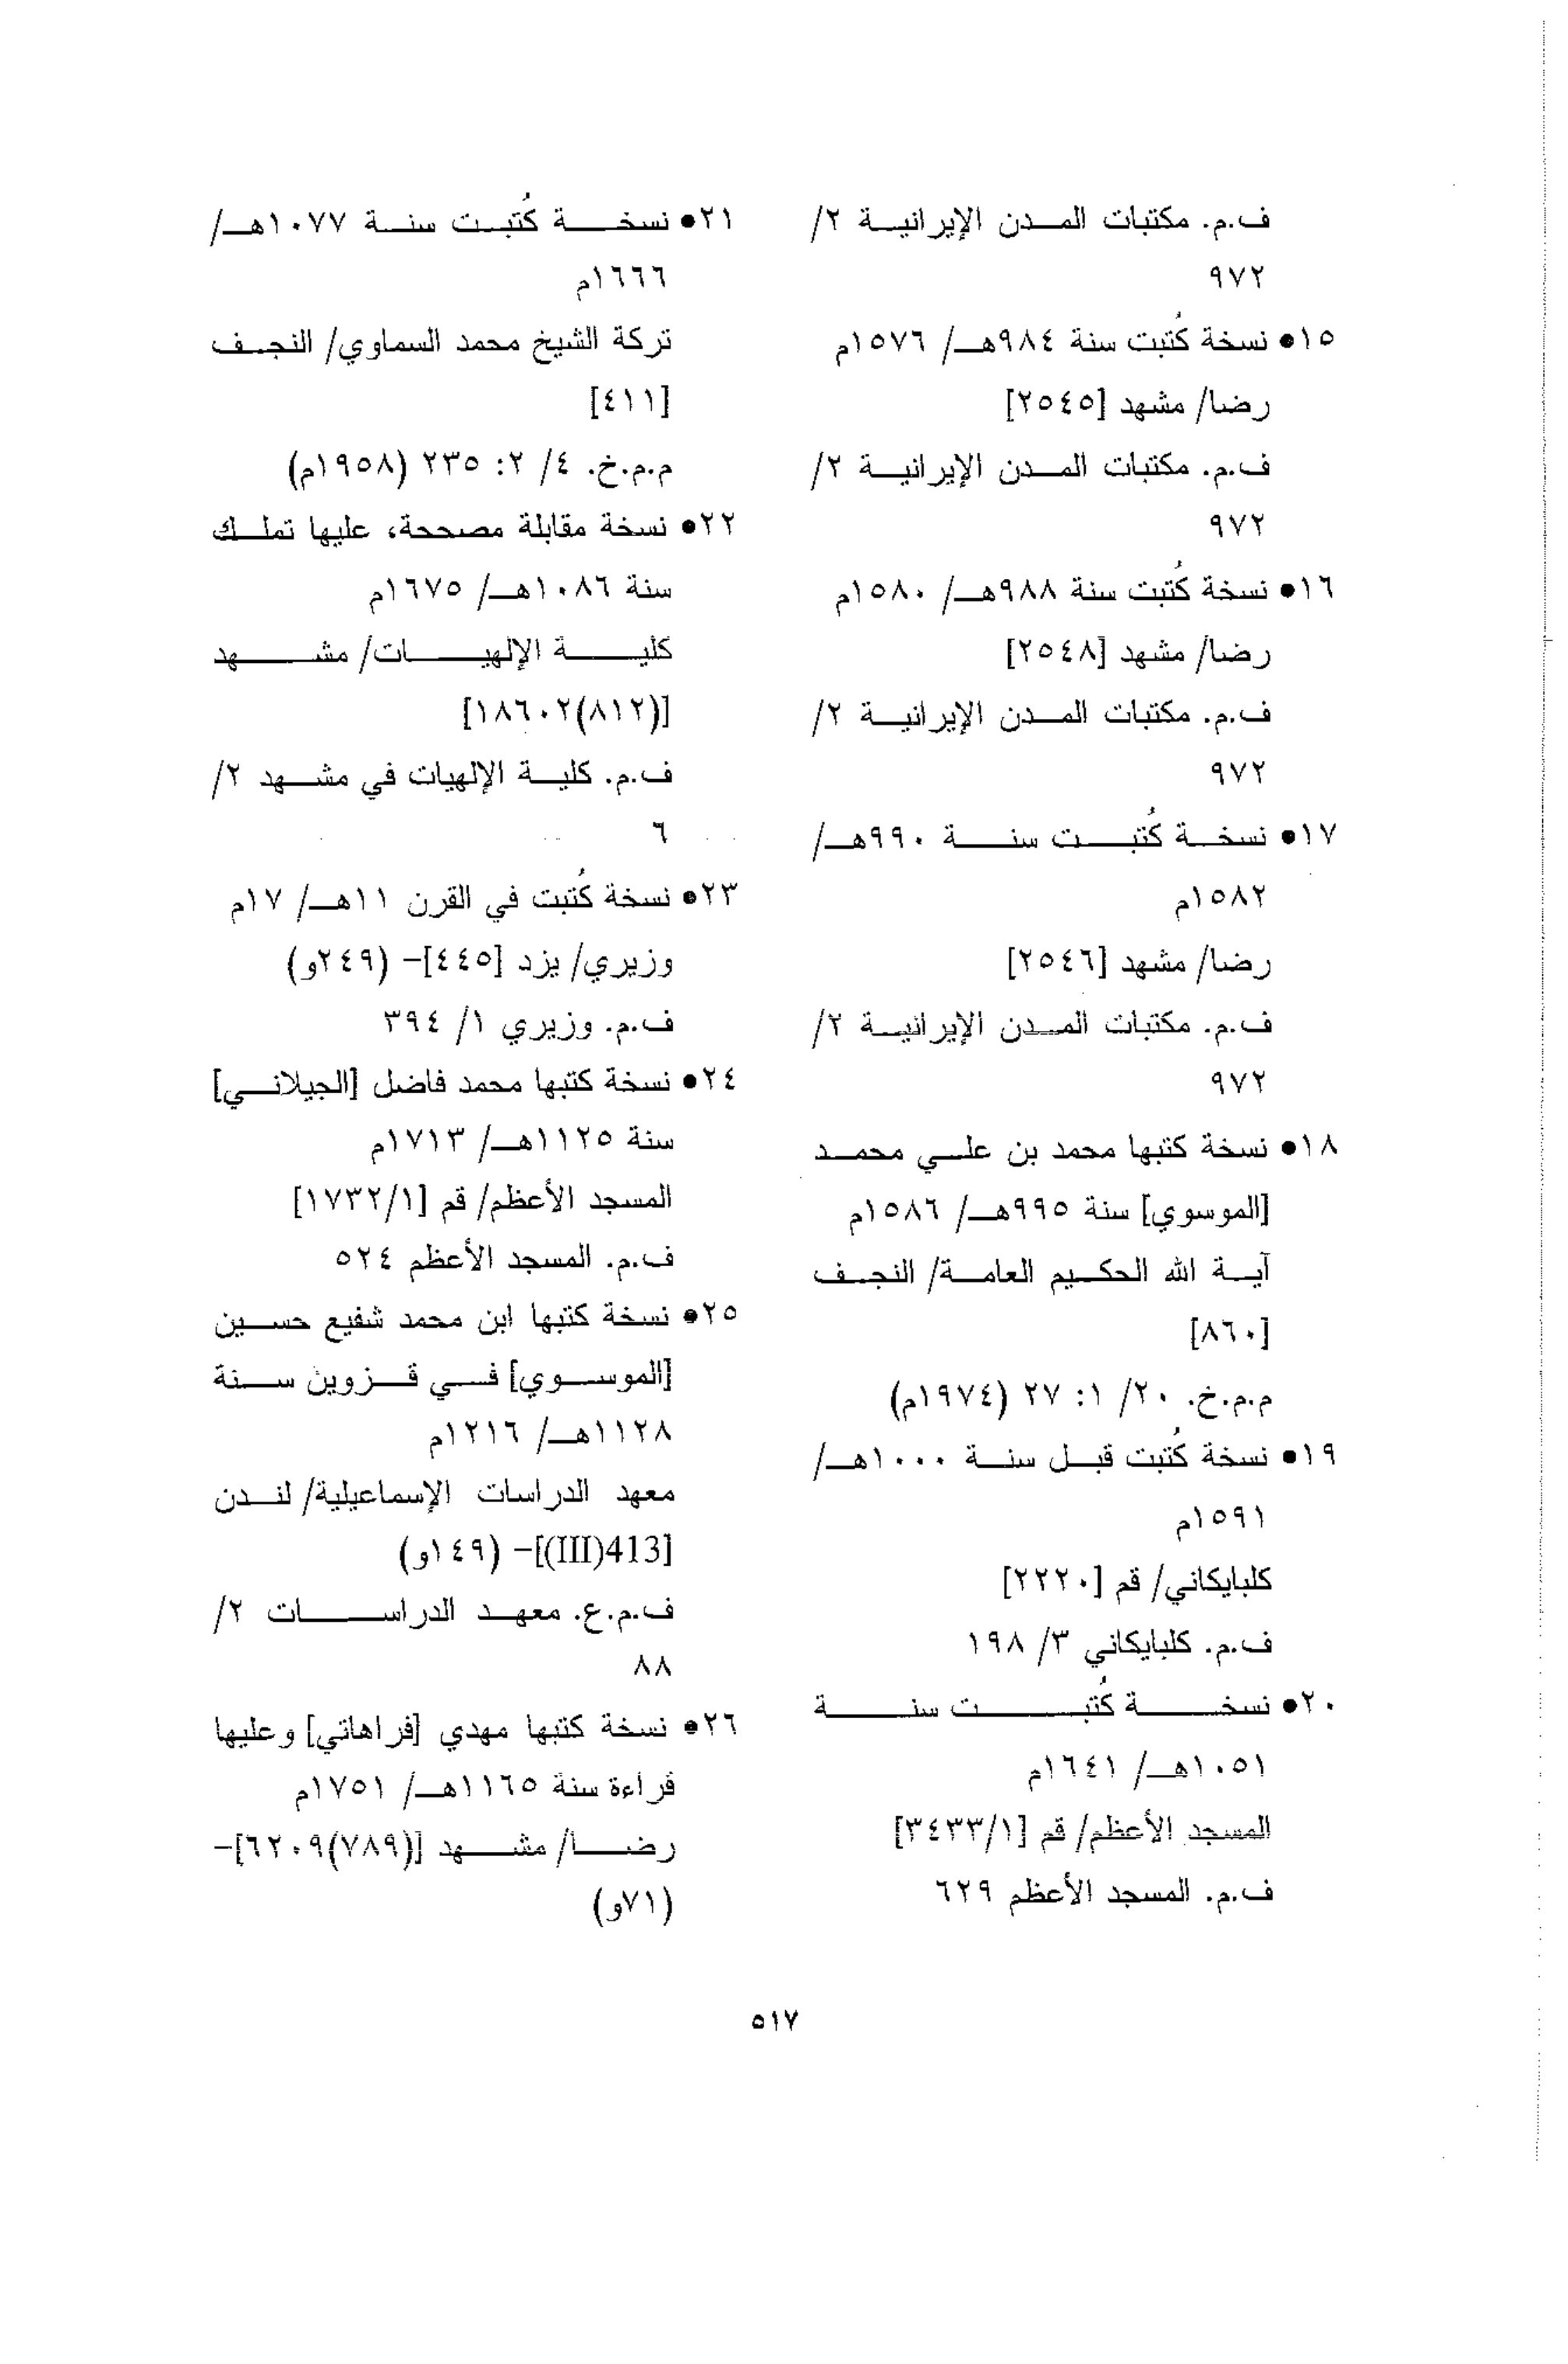 ف.م. مكتبات المدن الإيرانية ٢/
٩٧٢
١٥• نسخة كُتبت سنة ٩٨٤هـ/ ١٥٧٦م
رضا/ مشهد [٢٥٤٥]
ف.م. مكتبات المدن الإيرانية ٢/
٩٧٢
١٦• نسخة كُتبت سنة ٩٨٨هـ/ ١٥٨٠م
رضا/ مشهد [٢٥٤٨]
ف.م. مكتبات المدن الإيرانية ٢/
٩٧٢
١٧• نسخة كُتبت سنة ٩٩٠هـ/
١٥٨٢م
رضا/ مشهد [٢٥٤٦]
ف.م. مكتبات المدن الإيرانية ٢/
٩٧٢
١٨• نسخة كتبها محمد بن علي محمد
[الموسوي] سنة ٩٩٥هـ/ ١٥٨٦م
آية الله الحكيم العامة/ النجف
[٨٦٠]
م.م.خ. ٢٠/ ١: ٢٧ (١٩٧٤م)
١٩• نسخة كُتبت قبل سنة ١٠٠٠هـ/
١٥٩١م
كلبايكاني/ قم [٢٢٢٠]
ف.م. كلبايكاني ٣/ ١٩٨
٢٠• نسخة كُتبت سنة
١٠٥١هـ/ ١٦٤١م
المسجد الأعظم/ قم [٣٤٣٣/١]
ف.م. المسجد الأعظم ٦٢٩
٢١• نسخة كُتبت سنة ١٠٧٧هـ/
١٦٦٦م
تركة الشيخ محمد السماوي/ النجف
[٤١١]
م.م.خ. ٤/ ٢: ٢٣٥ (١٩٥٨م)
٢٢• نسخة مقابلة مصححة، عليها تملك
سنة ١٠٨٦هـ/ ١٦٧٥م
كلية الإلهيات/ مشهد
[(٨١٢)١٨٦٠٢]
ف.م. كلية الإلهيات في مشهد ٢/
٦
٢٣• نسخة كُتبت في القرن ١١هـ/ ١٧م
وزيري/ يزد [٤٤٥]- (٢٤٩و)
ف.م. وزيري ١/ ٣٩٤
٢٤• نسخة كتبها محمد فاضل [الجيلاني]
سنة ١١٢٥هـ/ ١٧١٣م
المسجد الأعظم/ قم [١٧٣٢/١]
ف.م. المسجد الأعظم ٥٢٤
٢٥• نسخة كتبها ابن محمد شفيع حسين
[الموسوي] في قزوين سنة
١١٢٨هـ/ ١٢١٦م
معهد الدراسات الإسماعيلية/ لندن
[413(III)]- (١٤٩و)
ف.م.ع. معهد الدراسات ٢/
٨٨
٢٦• نسخة كتبها مهدي [فراهاتي] وعليها
قراءة سنة ١١٦٥هـ/ ١٧٥١م
رضا/ مشهد [(٧٨٩)٦٢٠٩]-
(٧١و)
٥١٧